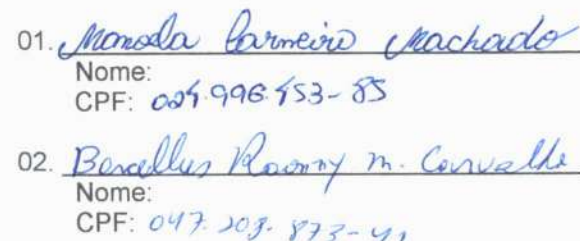 01. Manoela Carneiro Machado
Nome:
CPF: 024.996.453-85
02. Barcellus Roonny M. Carvalho
Nome:
CPF: 047.203.873-41